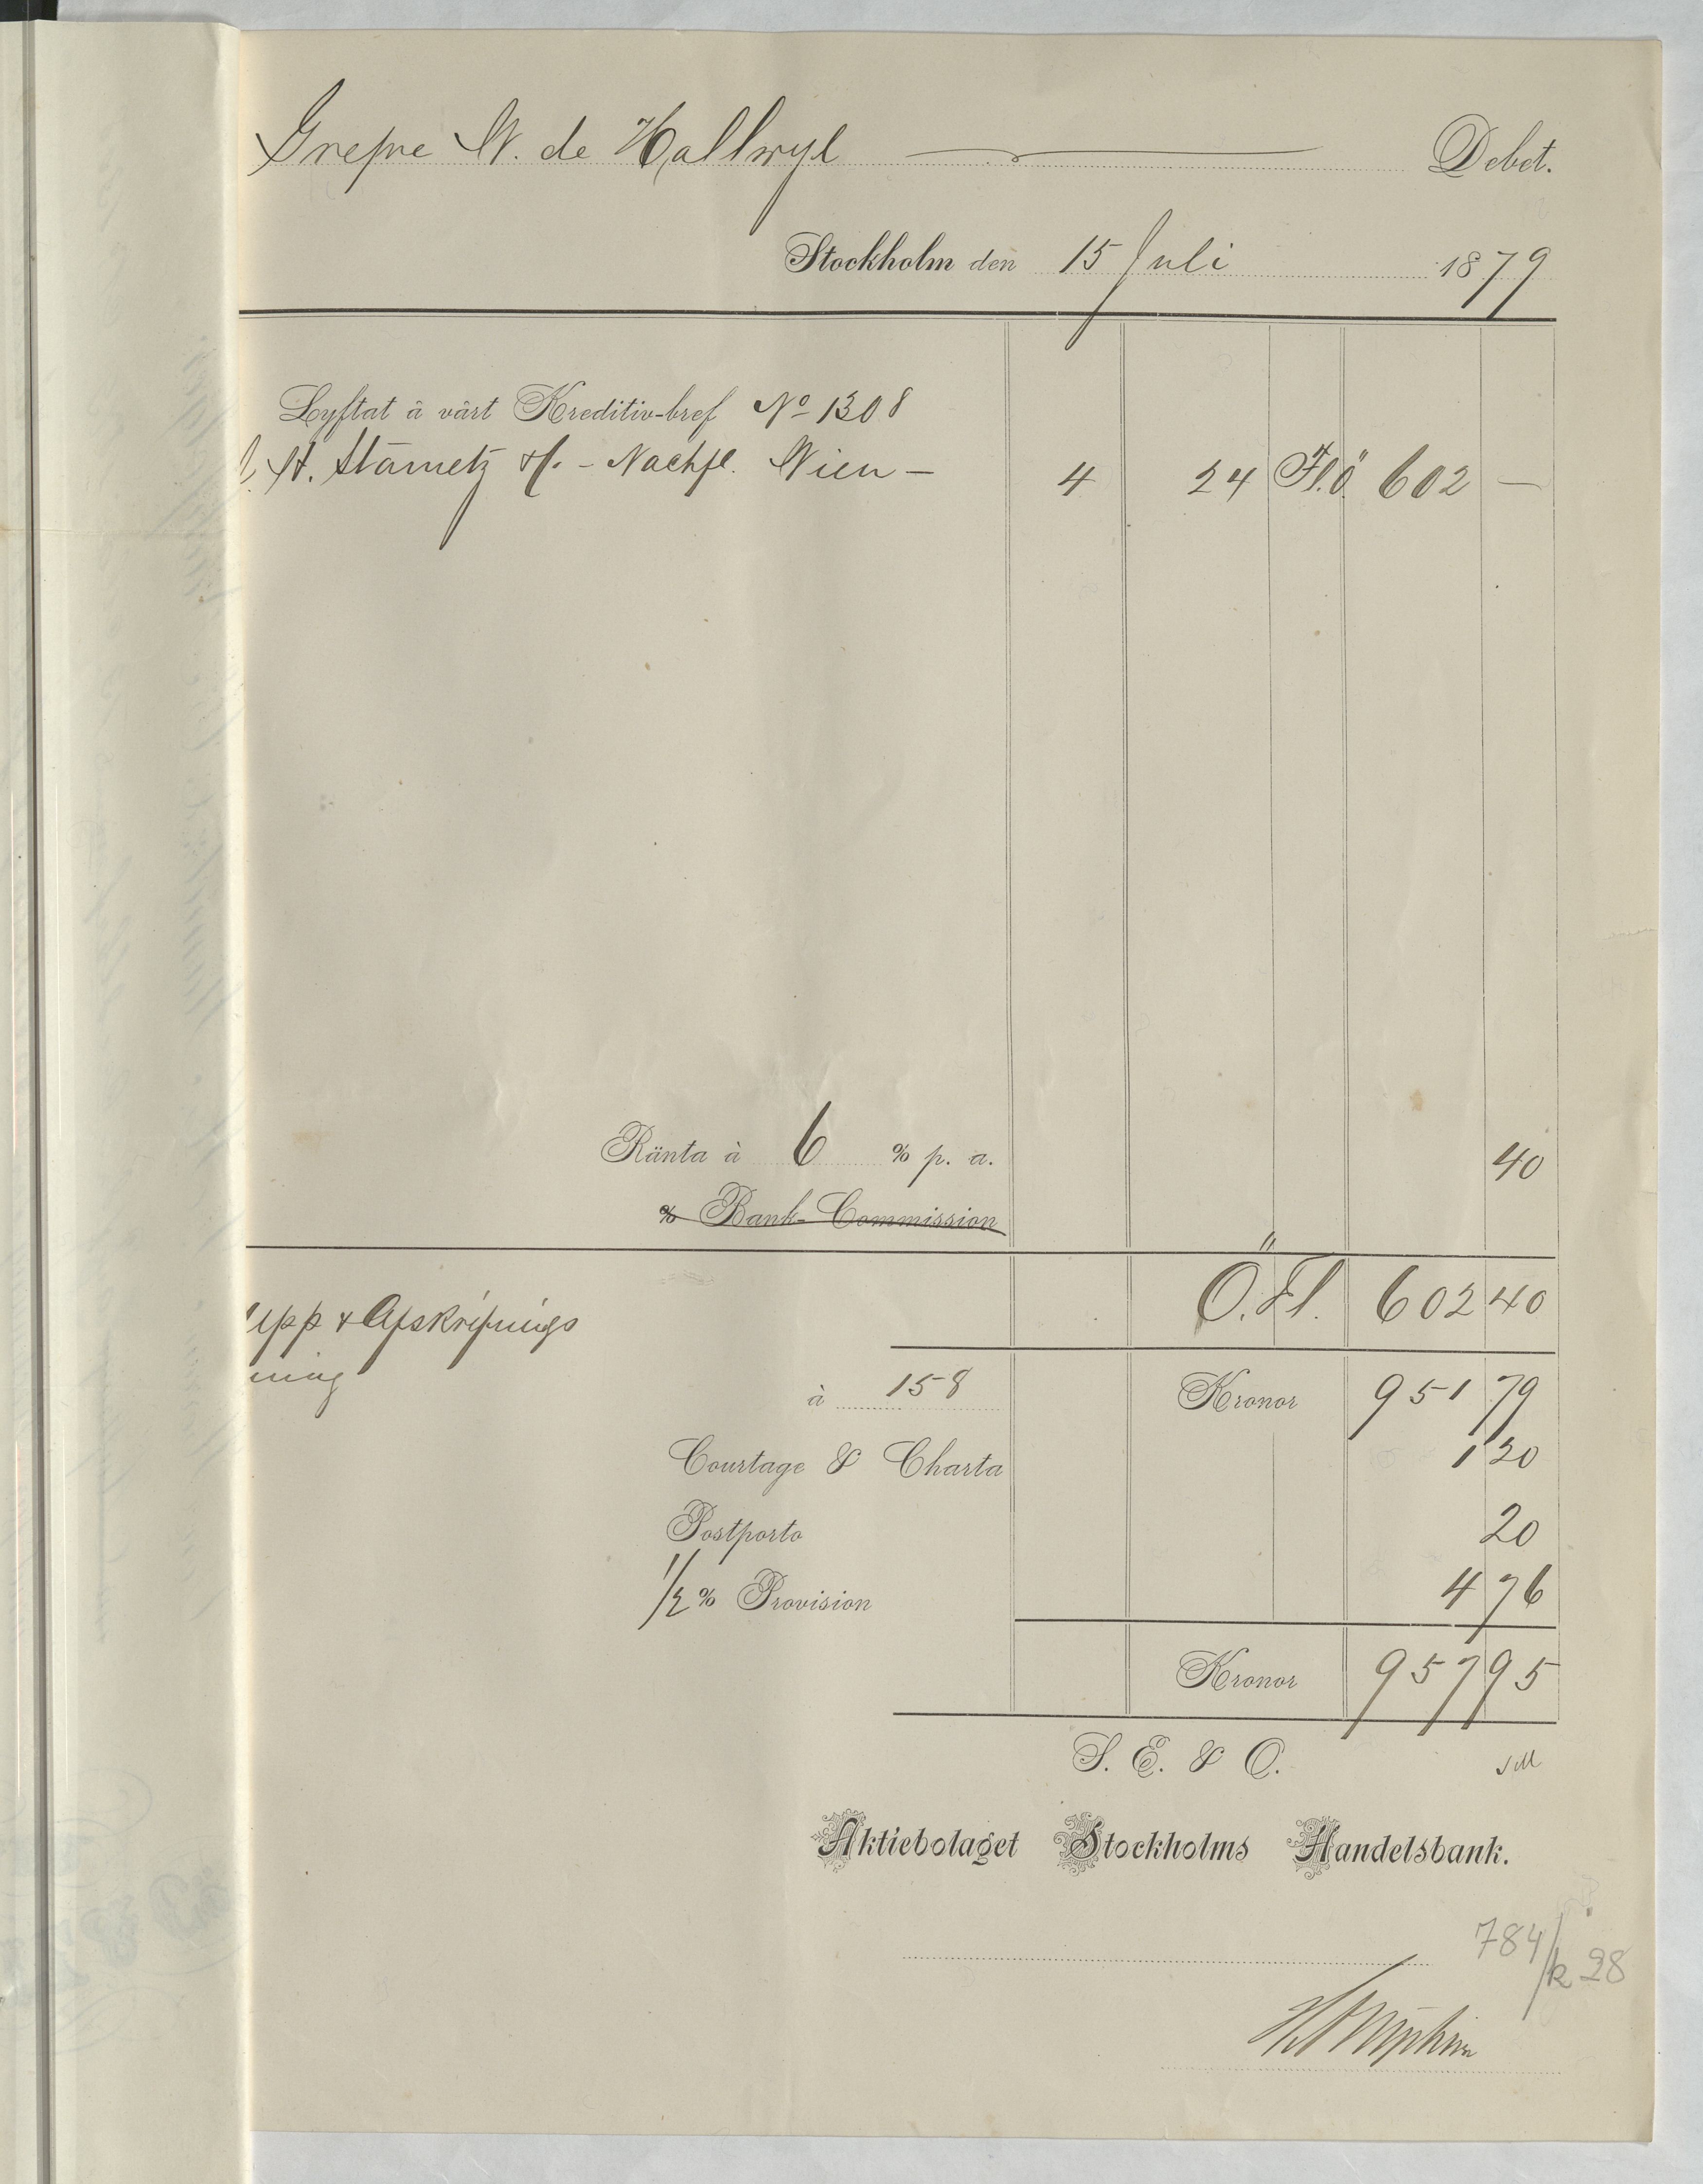 Grefve W. de Hallwyl Debet.
Stockholm den 15 Juli 1879
Lyftat å vårt Kreditiv-bref No 1308
H. Stametz & C. - Nachfl. Wien - 4 24 Fl.ö. 602 —
Ränta à 6 % p. a. 40
% Bank-Commission
Ö. Fl. 602 40
upp & Afskrifnings
ning
à 158 Kronor 951 79
Courtage & Charta 1 20
Postporto 20
1/2 % Provision 4 76
Kronor 957 95
S. E. & O.
Aktiebolaget Stockholms Handelsbank.
784/k 28